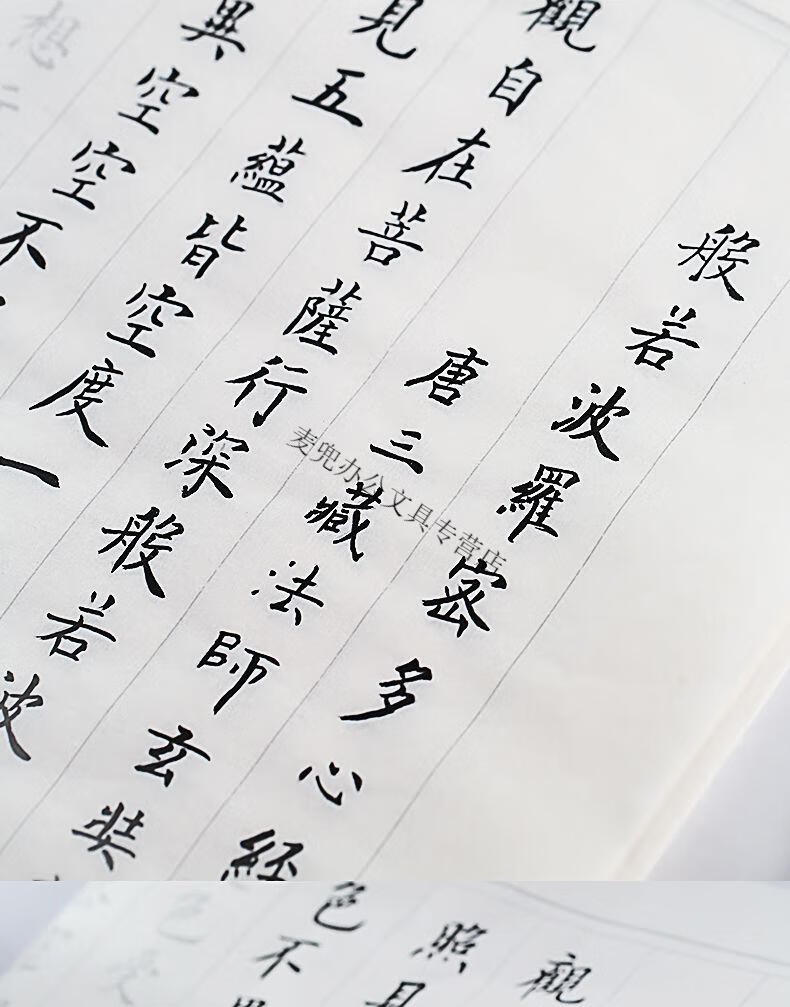 般若波羅密多心經
唐三藏法師玄奘
觀自在菩薩行深般若波
見五蘊皆空度一
異空空不
想
麦兜办公文具专营店
觀
照見
色不異
色受